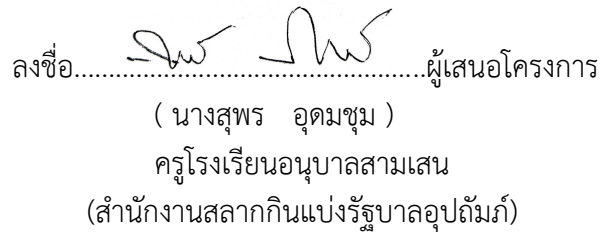 ลงชื่อ................................................ผู้เสนอโครงการ
( นางสุพร อุดมชุม )
ครูโรงเรียนอนุบาลสามเสน
(สำนักงานสลากกินแบ่งรัฐบาลอุปถัมภ์)